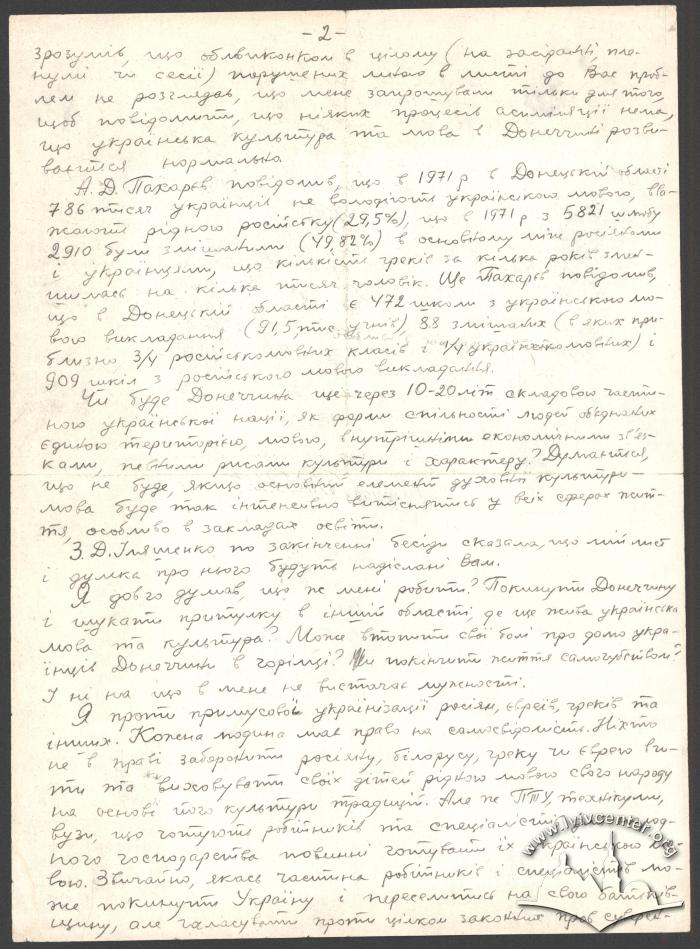 - 2 -
зрозумів, що облвиконком в цілому (на засіданні, пле-
нумі чи сесії) порушених мною в листі до Вас проб-
лем не розглядав, що мене запрошували тільки для того,
щоб повідомити, що ніяких процесів асиміляції нема,
що українська культура та мова в Донеччині розви-
вається нормально.
А.Д. Пахарєв повідомив, що в 1971 р в Донецькій області
786 тисяч українців не володіють українською мовою, вва-
жають рідною російську (29,5%), що в 1971 р з 5821 шлюбу
2910 були змішаними (49,82%) в основному між росіянами
і українцями, що кількість греків за кілька років змен-
шилась на кілька тисяч чоловік. Ще Пахарєв повідомив,
що в Донецькій області є 472 школи з українською мо-
вою викладання (91,5 тис учнів) 88 змішаних (в яких при-
близно 3/4 російськомовних класів і 1/4 українськомовних) і
909 шкіл з російською мовою викладання.
Чи буде Донеччина ще через 10-20 літ складовою части-
ною української нації, як форми спільності людей об'єднаних
єдиною територією, мовою, внутрішніми економічними зв'яз-
ками, певними рисами культури і характеру? Думається,
що не буде, якщо основний елемент духовної культури -
мова буде так інтенсивно витіснятись у всіх сферах жит-
тя, особливо в закладах освіти.
З.Д. Іляшенко по закінченні бесіди сказала, що мій лист
і думка про нього будуть надіслані Вам.
Я довго думав, що ж мені робити? Покинути Донеччину
і шукати притулку в іншій області, де ще жива українська
мова та культура? Може втопити свої болі про долю укра-
їнців Донеччини в горілці? Чи покінчити життя самогубством?
І ні на що в мене не вистачає мужності.
Я проти примусової українізації росіян, євреїв, греків та
інших. Кожна людина має право на самосвідомість. Ніхто
не в праві заборонити росіяну, білорусу, греку чи єврею вчи-
ти та виховувати своїх дітей рідною мовою свого народу
на основі його культури традицій. Але ж ПТУ, технікуми,
вузи, що готують робітників та спеціалістів
ного господарства повинні готувати їх українською
вою. Звичайно, якась частина робітників і спеціалістів мо-
же покинути Україну і переселитись на свою батьків-
щину, але галасувати проти цілком законних прав суверен-
www.lvivcenter.org